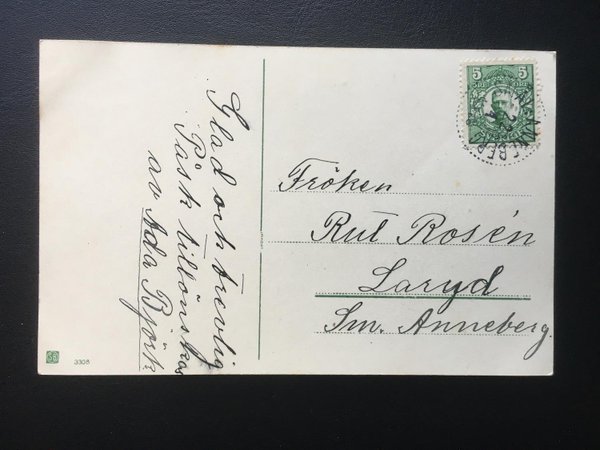 Glad och trevlig
Påsk tillönskas
av Ada Björk
5 5
Fröken
Rut Rosén
Laryd
Sm. Anneberg.
3308